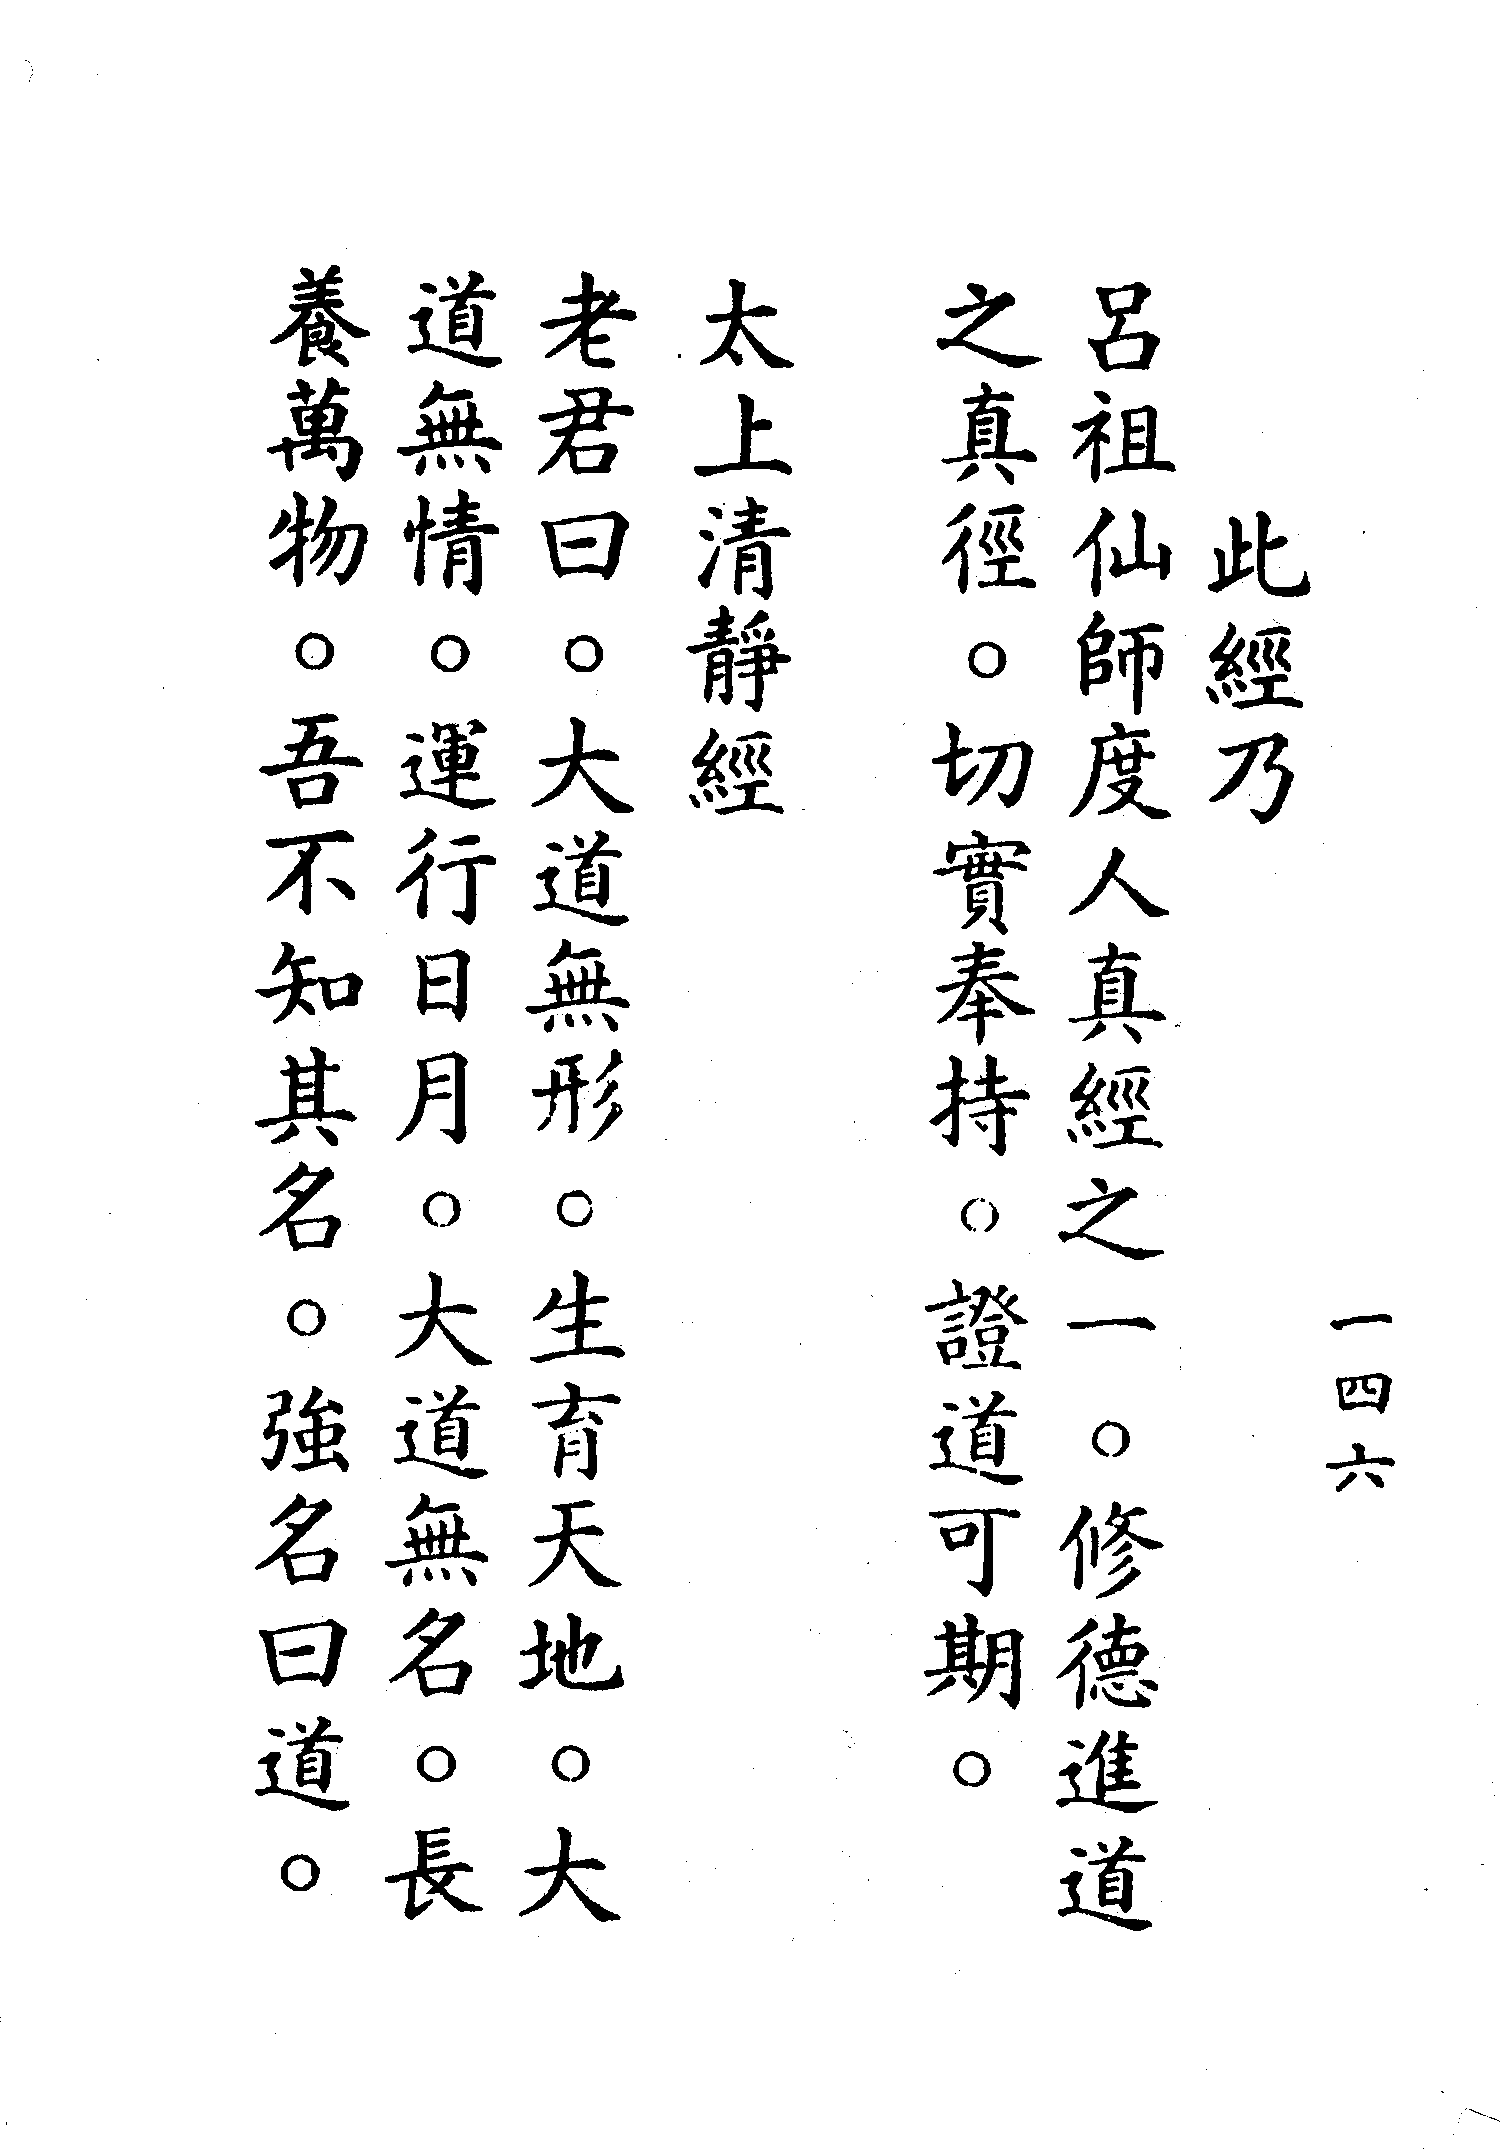 一四六
此經乃
呂祖仙師度人真經之一。修德進道
之真徑。切實奉持。證道可期。
太上清靜經
老君曰。大道無形。生育天地。大
道無情。運行日月。大道無名。長
養萬物。吾不知其名。強名曰道。